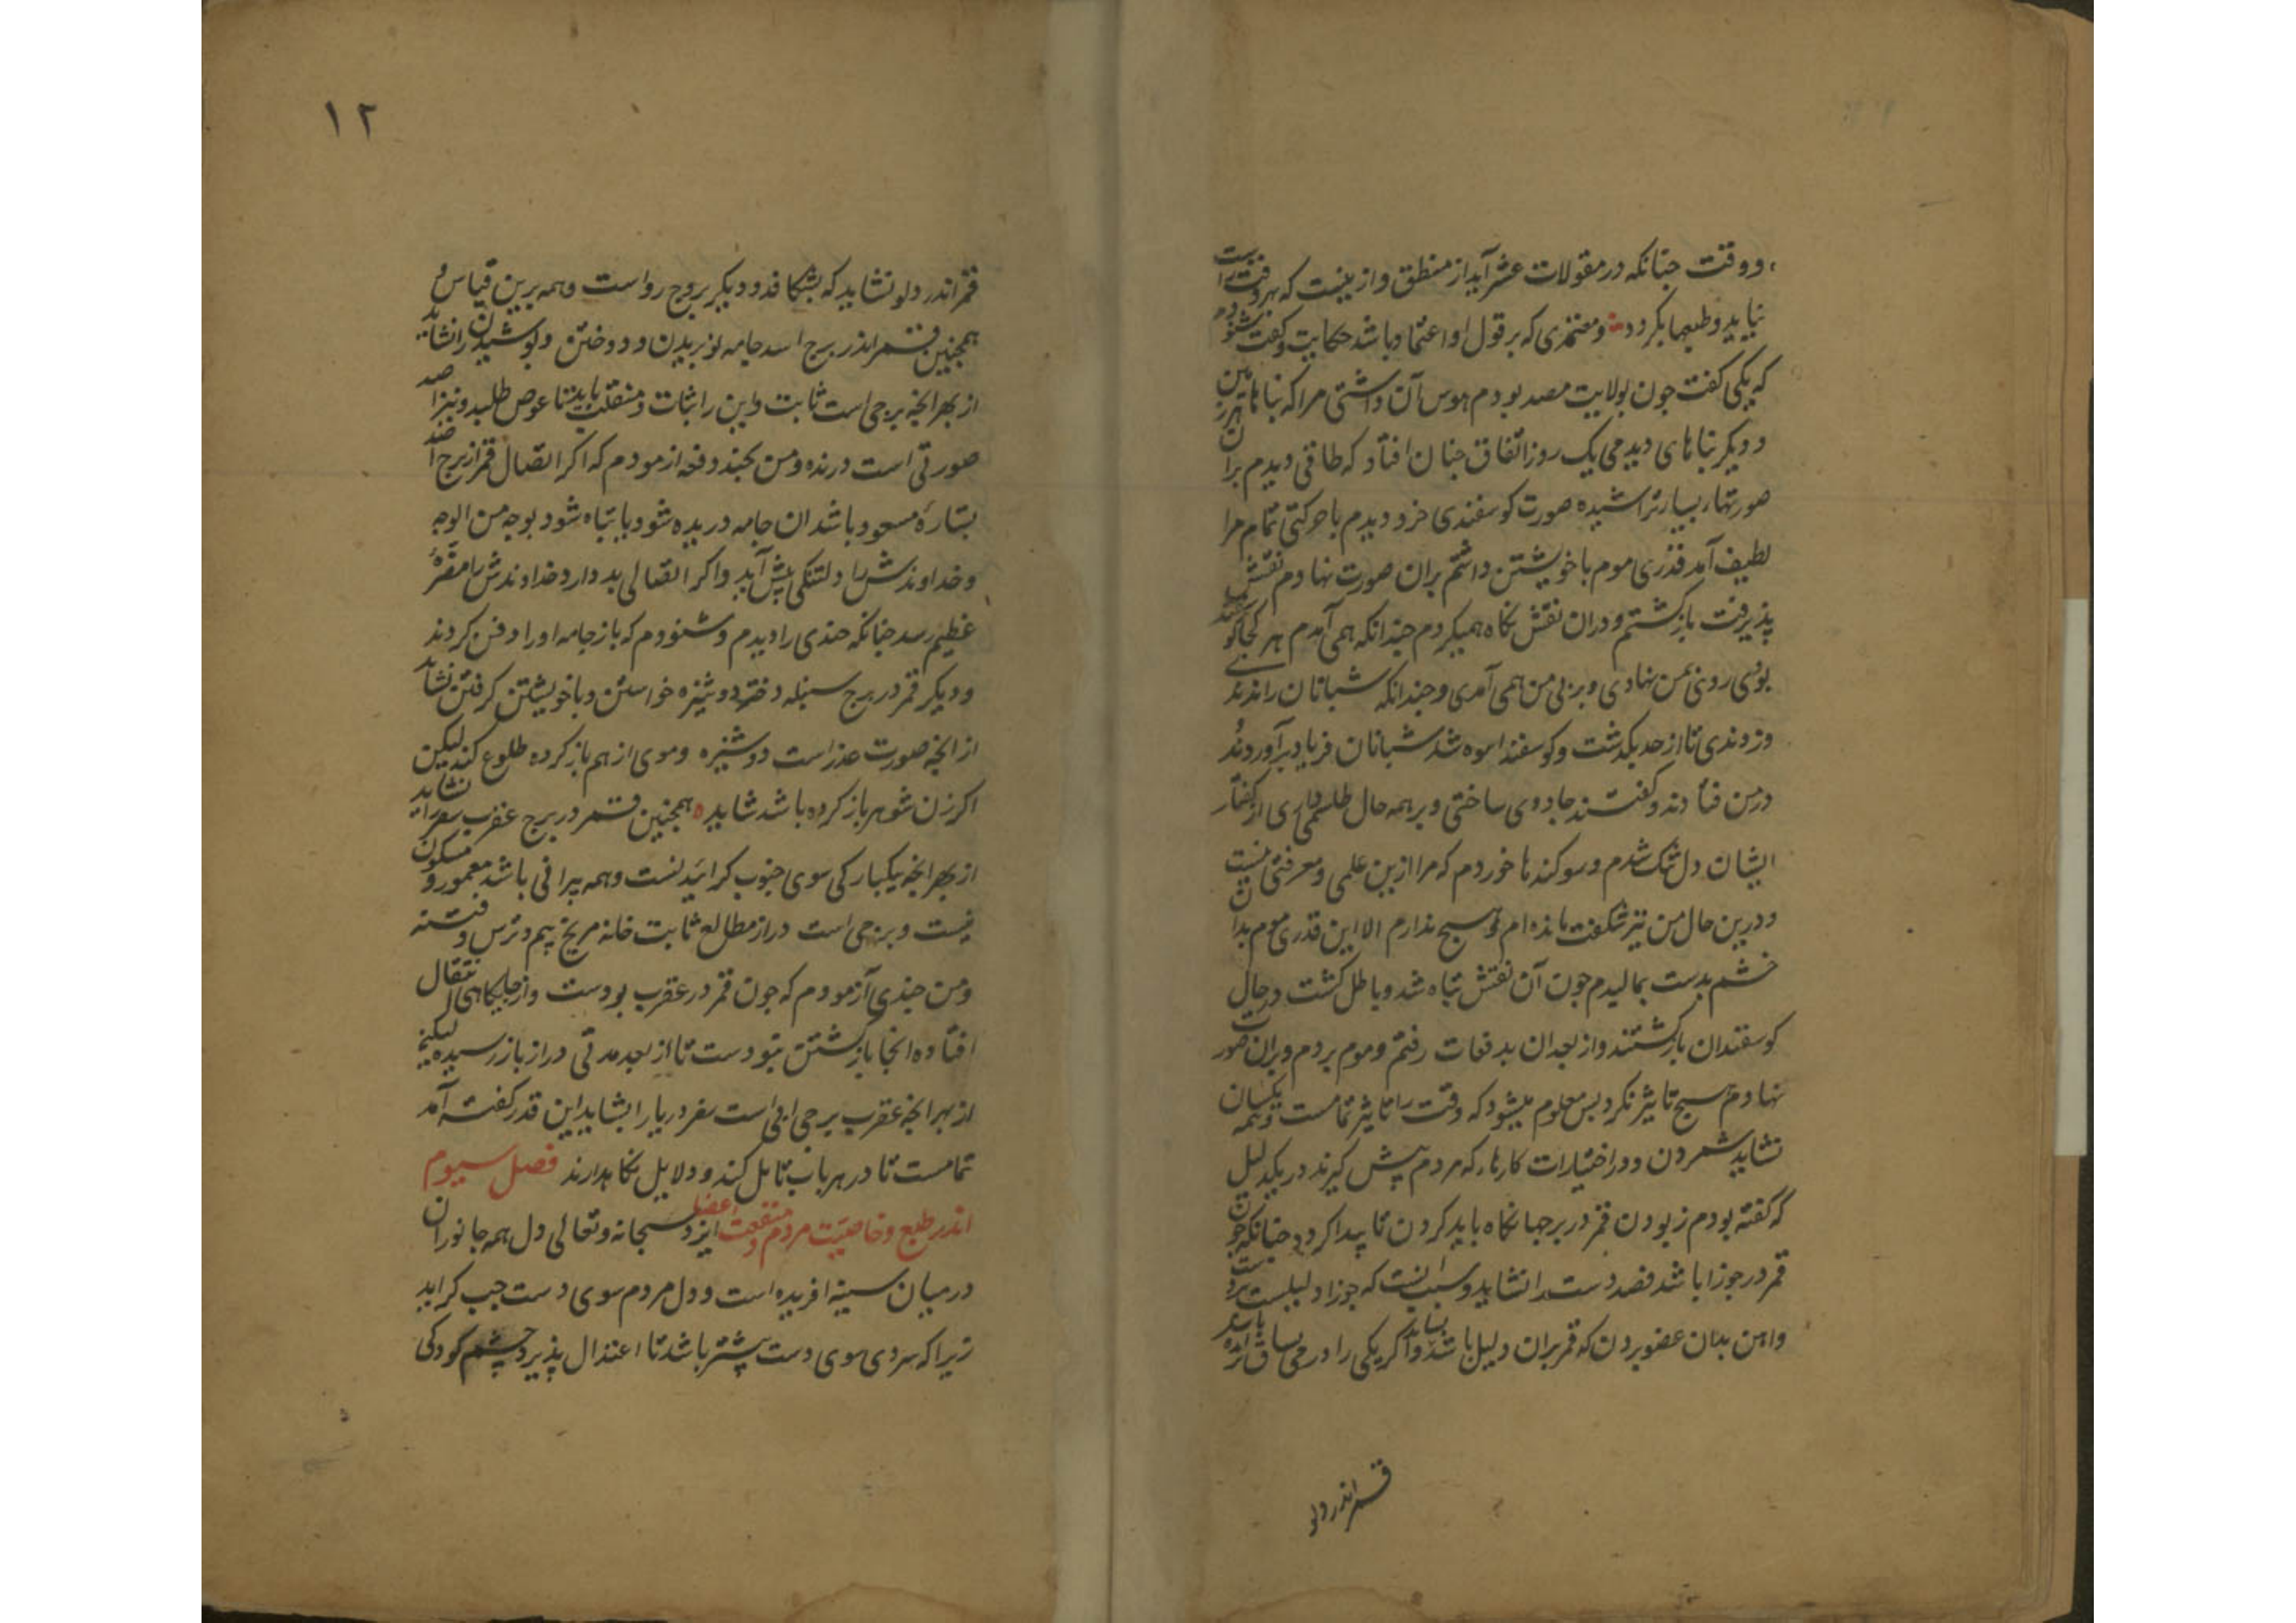 و وقت چنانکه در مقولات عشر آید از منطق و ازینست که بهر وقت راست
نیاید و طبعها بکردد و معتمدی که بر قول او اعتماد باشد حکایت کفت شنودم
که یکی کفت جون بولایت مصر بودم هوس آن داشتی مرا که بناها هرمین
و دیکر بناهای دیدمی یک روز اتفاق جنان افتاد که طاقی دیدم بران
صورتهاء بسیار تراشیده صورت کوسفندی خرد دیدم با حرکتی تمام مرا
لطیف آمد قدری موم با خویشتن داشتم بران صورت نهادم نقش
پذیرفت بازکشتم و دران نقش نکاه همیکردم جندانکه همی آمدم هر کجا کوسفند
بودی روی بمن نهادی و بر پی من همی آمدی و جندانکه شبانان راندندی
و زدندی تا از حد بکذشت و کوسفند انبوه شد شبانان فریاد برآوردند
در من فتادند و کفتند جادوی ساختی و بر همه حال طلسمی داری از کفتار
ایشان دل تنک شدم و سوکندها خوردم که مرا ازین علمی و معرفتی نیست
و درین حال من نیز شکفت مانده ام و هیچ ندارم الا این قدری موم بدان
خشم بدست بمالیدم جون آن نقش تباه شد و باطل کشت در حال
کوسفندان بازکشتند و از بعد آن بدفعات رفتم و موم بردم و بران صورت
نهادم هیچ تاثیر نکرد پس معلوم میشود که وقت را تاثیر تمامست و همه یکسان
نشاید شمردن و در اختیارات کارها که مردم پیش کیرند در یک دلیل
که کفته بودم ز بودن قمر در برجها نکاه باید کردن تا پیدا کردد جنانکه جون
قمر در جوزا باشد فصد دست را نشاید و سبب آنست که جوزا دلیلست بر دست
و آهن بدان عضو بردن که قمر بران دلیل باشد نباید و اکر یکی را درمی ساق
قمر اندر دلو
۱۲
قمر اندر دلو نشاید که بشکافد و دیکر بروج رواست و همه برین قیاس و
همجنین قمر اندر برج اسد جامه نو بریدن و دوختن و پوشیدن را نشاید
از بهر آنجه برجی است ثابت و این را ثبات و منقلب باید تا عوض طلبد و نیز اسد
صورتی است درنده و من بجند دفعه ازمودم که اکر اتصال قمر از برج اسد
بستاره مسعود باشد ان جامه دریده شود یا تباه شود بوجه من الوجه
و خداوندش را دلتنکی پیش آید و اکر اتصالی بد دارد خداوندش را مضره
عظیم رسد جنانکه جندی را دیدم و شنودم که باز جامه او را دفن کردند
و دیکر قمر در برج سنبله دختر دوشیزه خواستن و با خویشتن کرفتن نشاید
از آنجه صورت عذراست دوشیزه و موی از هم باز کرده طلوع کند لیکن
اکر زن شوهر باز کرده باشد شاید همجنین قمر در برج عقرب سفر را نشاید
از بهر آنجه یکبارکی سوی جنوب کراییدنست و همه ویرانی باشد معمور و مسکون
نیست و برجی است دراز مطالع ثابت خانه مریخ بیم و ترس و فتنه
و من جندی آزمودم که جون قمر در عقرب بودست و از جایکاهی انتقال
افتاده آنجا بازکشتن نبودست تا از بعد مدتی دراز باز رسیده لیکن
از بهر آنجه عقرب برجی آبی است سفر دریا را بشاید این قدر کفته آمد
تمامست تا در هر باب تامل کند و دلایل نکاه دارند فصل سیوم
اندر طبع و خاصیت مردم و منفعت اعضا ایزد سبحانه و تعالی دل همه جانوران
در میان سینه افریده است و دل مردم سوی دست جب کراید
زیرا که سردی سوی دست بیشتر باشد تا اعتدال پذیرد جشم کودکی